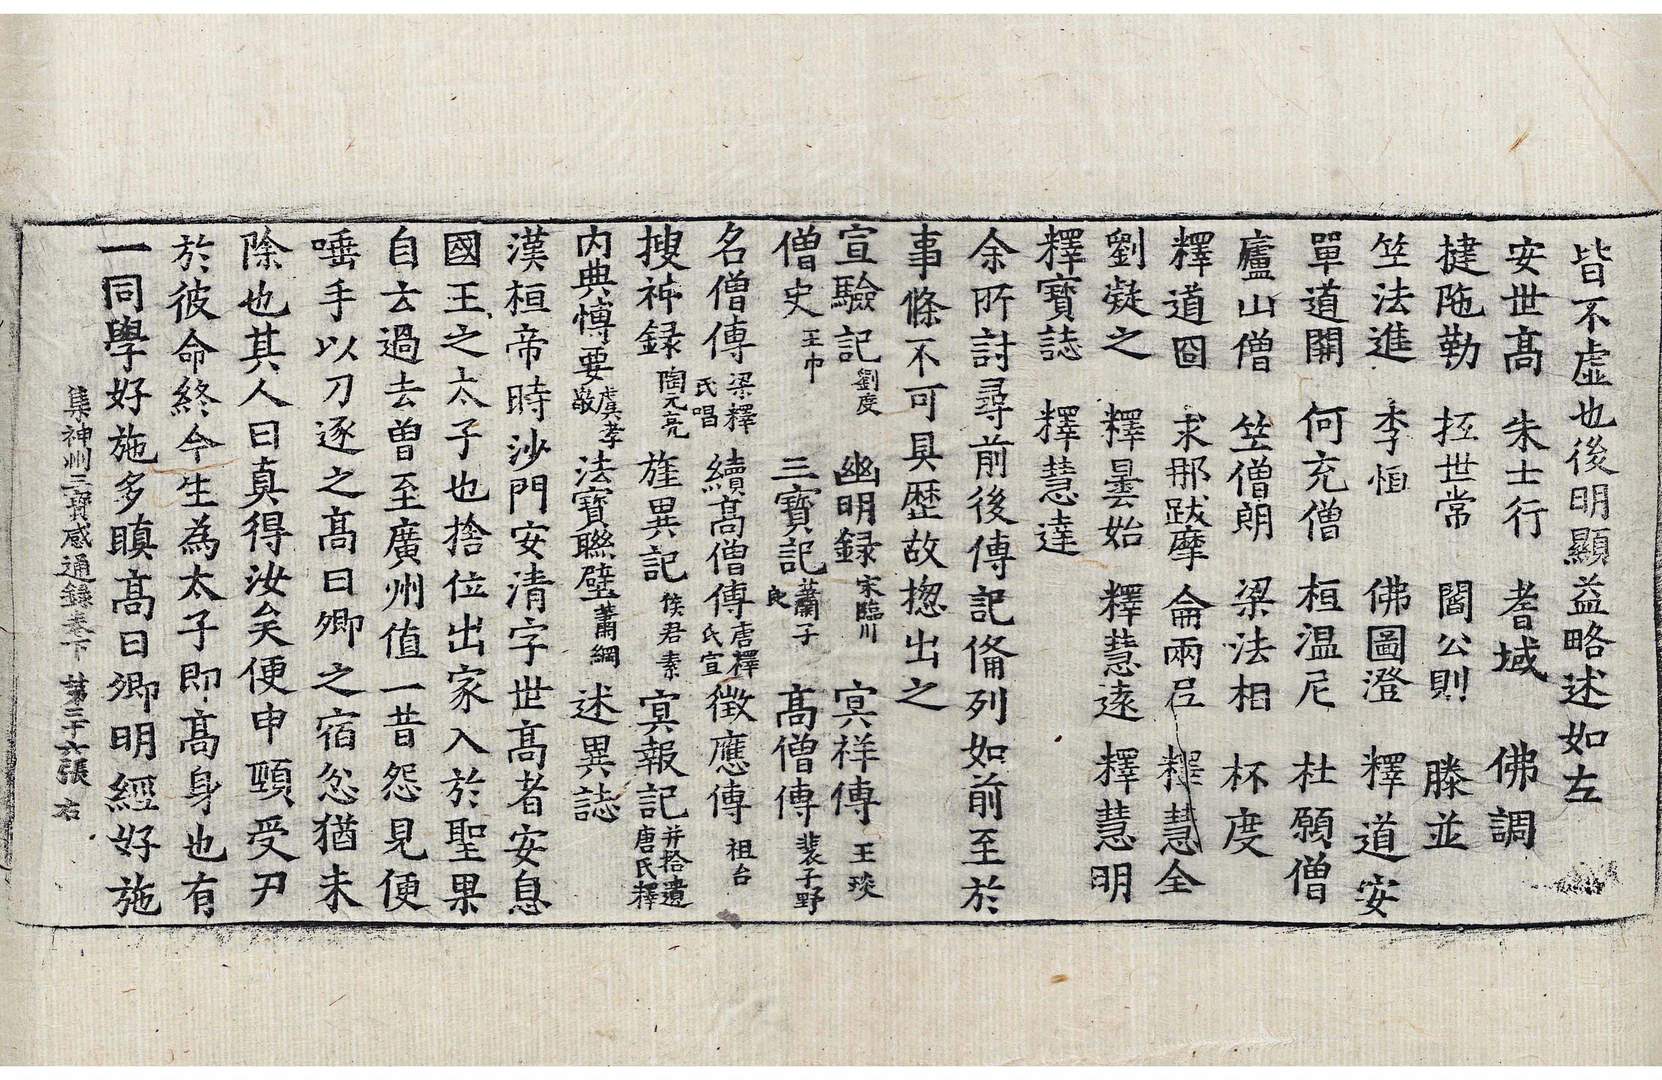 皆不虛也後明顯益略述如左
安世高 朱士行 耆域 佛調
揵陁勒 抵世常 闔公則 滕並
竺法進 李恒 佛圖澄 釋道安
單道開 何充僧 桓溫尼 杜願僧
廬山僧 竺僧朗 梁法相 杯度
釋道冏 求那跋摩 侖兩㠯 釋慧全
劉凝之 釋曇始 釋慧遠 釋慧明
釋寶誌 釋慧達
余所討尋前後傳記俻列如前至於
事條不可具歷故揔出之
宣驗記劉度 幽明録宋臨川 冥祥傳王琰
僧史王巾 三寶記蕭子良 高僧傳裴子野
名僧傳梁釋氏唱 續高僧傳唐釋氏宣 徵應傳祖台
搜神録陶元亮 旌異記侯君素 冥報記唐氏釋并拾遺
內典博要虞孝敬 法寶聮璧蕭綱 述異誌
漢桓帝時沙門安清字世高者安息
國王之太子也捨位出家入於聖果
自云過去曾至廣州值一昔怨見便
唾手以刀逐之高曰卿之宿忿猶未
除也其人曰真得汝矣便申頸受刃
於彼命終今生為太子即高身也有
一同學好施多瞋高曰卿明經好施
集神州三寶感通録卷下 第三十六張 右